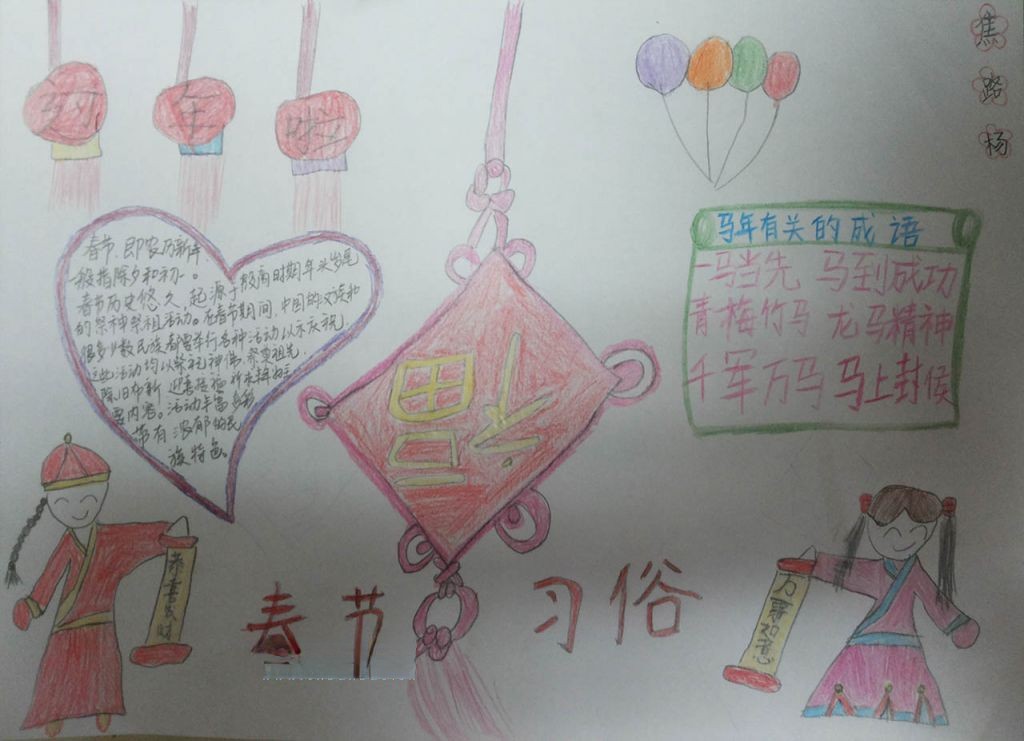 年
啦
焦
路
杨
春节,即农历新年
般指除夕和初一。
春节历史悠久,起源于殷商时期年头岁尾
的祭神祭祖活动。在春节期间,中国的汉族和
很多少数民族都要举行各种活动以示庆祝.
这些活动均以祭祀神佛、祭奠祖先、
除旧布新、迎喜接福、祈求丰年为主
要内容。活动丰富多彩,
带有浓郁的民
族特色。
福
马年有关的成语
一马当先 马到成功
青梅竹马 龙马精神
千军万马 马上封侯
恭喜发财
春节习俗
万事如意